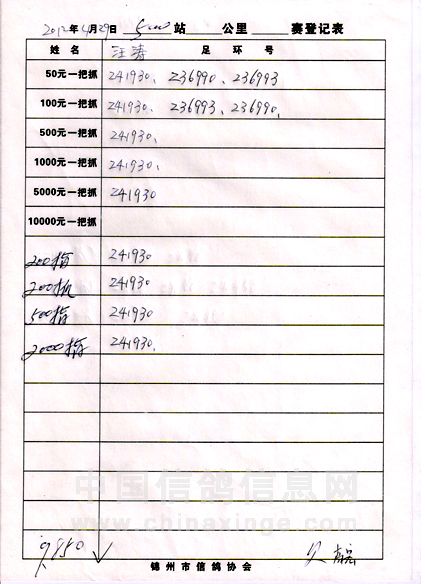 2012年4月29日 500站 公里 赛登记表
姓名 汪涛 足环号
50元一把抓 241930、 236990、 236993
100元一把抓 241930、 236993、 236990、
500元一把抓 241930、
1000元一把抓 241930、
5000元一把抓 241930
10000元一把抓
200指 241930
200 241930
500指 241930
2000指 241930、
中国信鸽信息网
www.chinaxinge.com
9850
锦州市信鸽协会